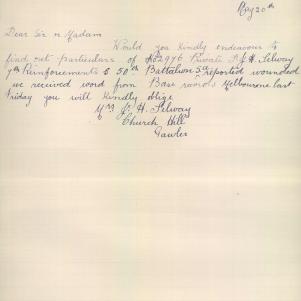 May 20th
Dear Sir or Madam
Would you kindly endeavour to
find out particulars of No 2976 Private P. J. H. Selway
7th Reinforcements to 50th Battalion reported wounded
we received word from Base records Melbourne last
Friday you will kindly oblige
Mrs J. H. Selway
Church Hill
Gawler